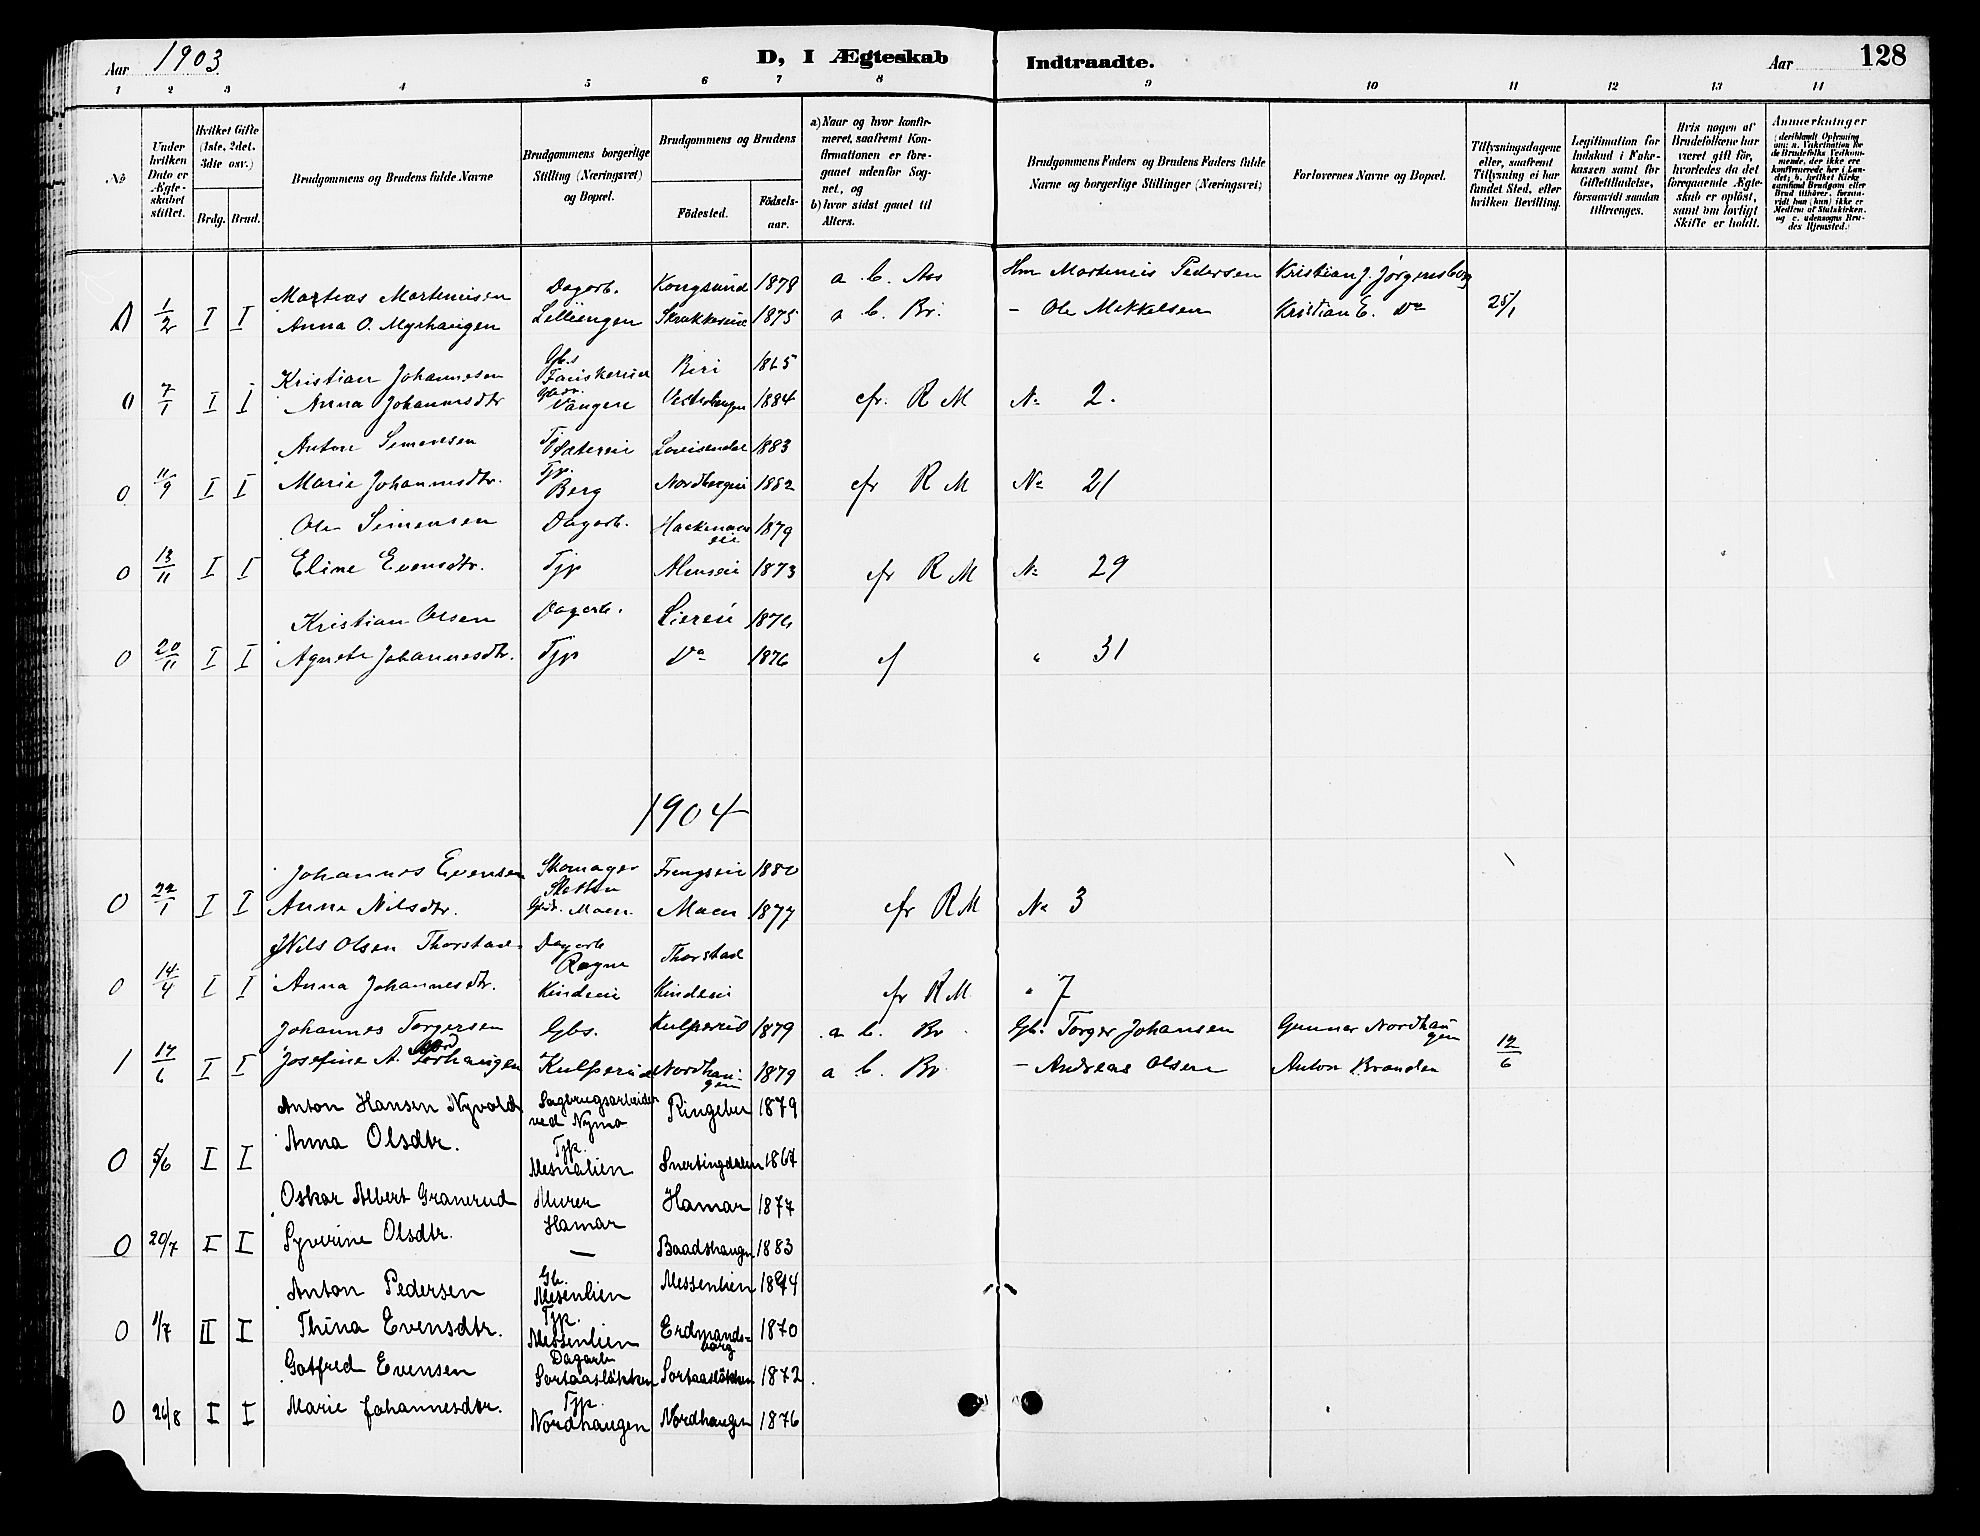 Aar 1903
D, I Ægteskab Indtraadte.
Aar
128
1 2 3 4 5 6 7 8 9 10 11 12 13 14
No
Under hvilken Dato er Ægteskabet stiftet.
Hvilket Gifte (1ste, 2det. 3die osv.)
Brdg. Brud.
Brudgommens og Brudens fulde Navne
Brudgommens borgerlige Stilling (Næringsvei) og Bopæl.
Brudgommens og Brudens
Fødested.
Fødselsaar.
a) Naar og hvor konfirmeret, saafremt Konfirmationen er foregaaet udenfor Sognet, og
b) hvor sidst gaaet til Alters.
Brudgommens Faders og Brudens Faders fulde Navne og borgerlige Stillinger (Næringsvei)
Forlovernes Navne og Bopæl.
Tillysningsdagene eller, saafremt Tillysning ei har fundet Sted, efter hvilken Bevilling.
Legitimation for Indskud i Enkekassen samt for Giftetilladelse, forsaavidt saadan tiltrænges.
Hvis nogen af Brudefolkene har været gift før, hvorledes da det foregaaende Ægteskab er opløst, samt om lovligt Skifte er holdt.
Anmerkninger
Martemisen Dagarb. Kongsund 1878 a b. Aas Hm Martenius Pedersen Kristian J. Jørgensborg
1/2 I I Anna O. Myrhaugen Lilliengen 1875 a b. Br. - Ole Mikkelsen Kristian E. Do 25/1
Kristian Johannesen Gbs Biri 1865
0 7/1 I I Anna Johannesdtr Vangen 1884 cfr. R M No 2.
Anton Simensen 1883
0 11/9 I I Marie Johannesdtr. Tjp. Berg 1882 cfr R M No 21
Ole Simensen Dagarb. 1879
0 13/11 I I Eline Evensdtr. Tjp 1873 cfr R M No 29
Kristian Olsen Dagarb. Liereie 1874
0 20/11 I I Agnete Johannesdtr. Tjp Do 1876 cf " 31
1904
Johannes Evensen Skomager 1880
0 22/1 I I Anna Nilsdtr. Moen. Moen 1877 cfr R M No 3
Nils Olsen Thorstad Dagarb Thorstad
0 14/4 I I Anna Johannesdtr. Kindseie Kindseie cfr R M. " 7
Johannes Torgersen Gbs. Kulperud 1879 a b. Br. Gb. Torger Johansen Gunnar Nordhaugen
1 17/6 I I Josefine A. Nordhaugen Kulperud Nordhaugen 1879 a b. Br - Andreas Olsen Anton Branden 12/6
Anton Hansen Nyvold Sagbrugsarbeider ved Nymo Ringebu 1879
0 5/6 I I Anna Olsdtr. Tjp. Mesnalien Snertingdalen 1867
Oskar Albert Granerud Murer Hamar Hamar 1877
0 20/7 I I Syverine Olsdtr. — Baadshaugen 1883
Anton Pedersen Gb. Mesenlien Messenlien 1844
0 1/7 II I Thina Evensdtr. Tjp. Messenlien Erdmandsborg 1870
Gotfred Evensen Dagarb Sortaasløkken Sortaasløkken 1872.
0 26/8 I I Marie Johannesdtr. Tjp. Nordhaugen Nordhaugen 1876